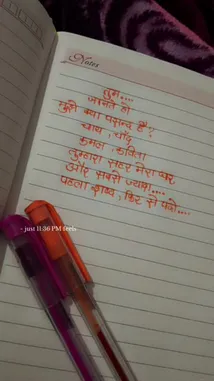 Notes
तुम....
जानते हो
मुझे क्या पसन्द है?
चाय, चाँद
कमल, कविता
तुम्हारा शहर मेरा घर
और सबसे ज्यादा....
पहला शब्द, फिर से पढ़ो....
- just 11:36 PM feels